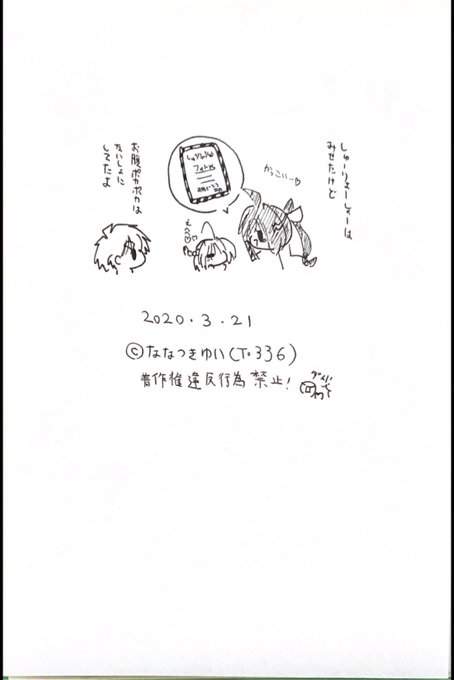 しゅーりょーしょーは
みせたけど
かっこいー♡
しゅうりょうしょう
フォト也
えへへ♡
お腹ポカポカは
ないしょに
してたよ
2020.3.21
©ななつきゆい(T•336)
著作権違反行為禁止!